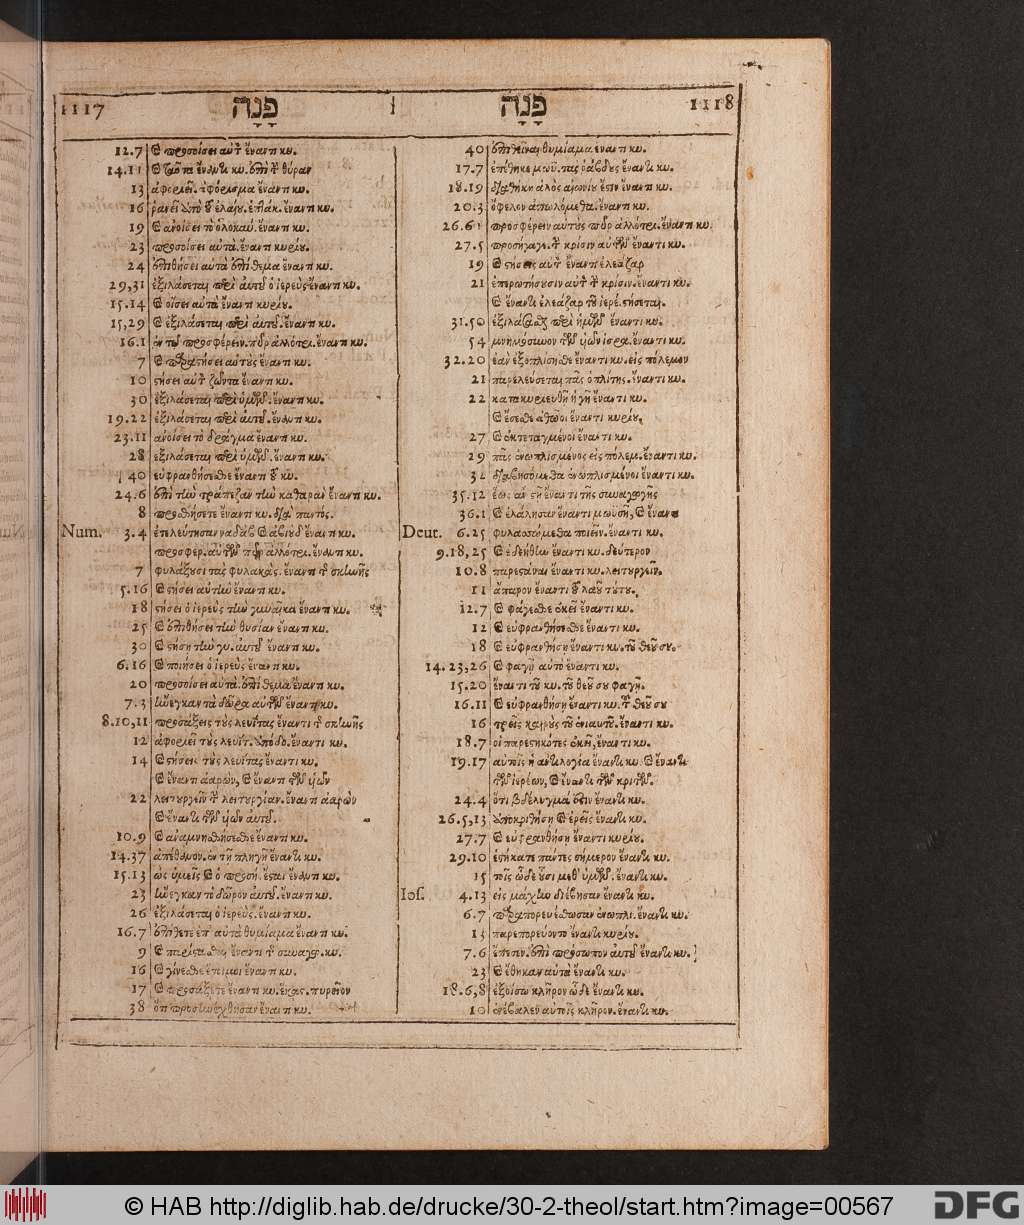 1117 פָּנָה
פָּנָה 1118
12.7 καὶ προσοίσει αὐτὸ ἔναντι κυ.
14.11 ἔναντι κυ. ἐπὶ τὴν θύραν
13 ἀφόρισμα ἔναντι κυ.
16 ῥανεῖ ἐλαίου. ἔναντι κυ.
19 καὶ ἀνοίσει τὸ ὁλοκαύ. ἔναντι κυ.
23 προσοίσει αὐτὰ. ἔναντι κυρίου.
24 ἐπιθήσει αὐτὰ ἐπίθεμα ἔναντι κυ.
29,31 ἐξιλάσεται περὶ αὐτοῦ ὁ ἱερεὺς ἔναντι κυ.
15.14 καὶ οἴσει αὐτὰ ἔναντι κυρίου.
15,29 καὶ ἐξιλάσεται περὶ αὐτοῦ. ἔναντι κυ.
16.1 ἐν τῷ προσφέρειν. πῦρ ἀλλότρι. ἔναντι κυ.
7 καὶ στήσει αὐτοὺς ἔναντι κυ.
10 στήσει αὐτὸν ζῶντα ἔναντι κυ.
30 ἐξιλάσεται περὶ ὑμῶν. ἔναντι κυ.
19.22 ἐξιλάσεται περὶ αὐτοῦ. ἔναντι κυ.
23.11 ἀνοίσει τὸ δράγμα ἔναντι κυ.
28 ἐξιλάσεται περὶ ὑμῶν. ἔναντι κυ.
40 εὐφρανθήσεσθε ἔναντι τοῦ κυ.
24.6 ἐπὶ τὴν τράπεζαν τὴν καθαρὰν ἔναντι κυ.
8 προθήσετε ἔναντι κυ. διὰ παντός.
Num. 3.4 ἐτελεύτησαν ναδὰβ καὶ ἀβιοὺδ ἔναντι κυ.
προσφερ. αὐτῶν πῦρ ἀλλότρι. ἔναντι κυ.
7 φυλάξουσι τὰς φυλακὰς. ἔναντι τῆς σκηνῆς
5.16 καὶ στήσει αὐτὴν ἔναντι κυ.
18 στήσει ὁ ἱερεὺς τὴν γυναῖκα ἔναντι κυ.
25 καὶ ἐπιθήσει τὴν θυσίαν ἔναντι κυ.
30 καὶ στήσῃ τὴν γυ. αὐτοῦ ἔναντι κυ.
6.16 καὶ ποιήσει ὁ ἱερεὺς ἔναντι κυ.
20 προσοίσει αὐτὰ. ἐπίθεμα ἔναντι κυ.
7.3 ἤνεγκαν τὰ δῶρα αὐτῶν ἔναντι κυ.
8.10,11 προσάξεις τοὺς λευίτας ἔναντι τῆς σκηνῆς
12 ἀφοριεῖ τοὺς λευίτ. ἔναντι κυ.
14 καὶ στήσεις τοὺς λευίτας ἔναντι κυ.
καὶ ἔναντι ἀαρὼν, καὶ ἔναντι τῶν υἱῶν
22 λειτουργεῖν τὴν λειτουργίαν. ἔναντι ἀαρὼν
καὶ ἔναντι τῶν υἱῶν αὐτοῦ.
10.9 καὶ ἀναμνησθήσεσθε ἔναντι κυ.
14.37 ἀπέθανον. ἐν τῇ πληγῇ ἔναντι κυ.
15.13 ὡς ὑμεῖς καὶ ὁ προσή. ἔσται ἔναντι κυ.
23 ἤνεγκαν τὸ δῶρον αὐτοῦ. ἔναντι κυ.
26 ἐξιλάσεται ὁ ἱερεὺς. ἔναντι κυ.
16.7 ἐπίθετε ἐπ' αὐτὰ θυμίαμα ἔναντι κυ.
9 ἔναντι τῆς συναγω. κυ.
16 καὶ γίνεσθε ἕτοιμοι ἔναντι κυ.
17 καὶ προσάξετε ἔναντι κυ. ἕκασ. πυρεῖον
38 ὅτι προσηνέχθησαν ἔναντι κυ.
40 ἐπιθεῖναι θυμίαμα ἔναντι κυ.
17.7 ἐπέθηκε μωϋ. τὰς ῥάβδους ἔναντι κυ.
18.19 διαθήκη ἁλὸς αἰωνίου ἐστὶν ἔναντι κυ.
20.3 ὄφελον ἀπωλόμεθα. ἔναντι κυ.
26.61 προσφέρειν αὐτοὺς πῦρ ἀλλότρι. ἔναντι κυ.
27.5 προσήγαγε. τὴν κρίσιν αὐτῶν ἔναντι κυ.
19 καὶ στήσεις αὐτὸν ἔναντι ἐλεάζαρ
21 ἐπερωτήσουσιν αὐτὸν τὴν κρίσιν. ἔναντι κυ.
καὶ ἔναντι ἐλεάζαρ τοῦ ἱερέ. στήσεται.
31.50 ἐξιλάσασθαι περὶ ἡμῶν ἔναντι κυ.
54 μνημόσυνον τῶν υἱῶν ἰσρα. ἔναντι κυ.
32.20 ἐὰν ἐξοπλίσησθε ἔναντι κυ. εἰς πόλεμον
21 παρελεύσεται πᾶς ὁπλίτης. ἔναντι κυ.
22 κατακυριευθῇ ἡ γῆ ἔναντι κυ.
καὶ ἔσεσθε ἀθῷοι ἔναντι κυρίου.
27 καὶ ἐκτεταγμένοι ἔναντι κυ.
29 πᾶς ἐνωπλισμένος εἰς πόλεμ. ἔναντι κυ.
32 διαβησόμεθα ἐνωπλισμένοι ἔναντι κυ.
35.12 ἕως ἂν στῇ ἔναντι τῆς συναγωγῆς
36.1 καὶ ἐλάλησαν ἔναντι μωυσῆ, καὶ ἔναντι
Deut. 6.25 φυλασσώμεθα ποιεῖν. ἔναντι κυ.
9.18,25 καὶ ἐδεήθην ἔναντι κυ. δεύτερον
10.8 παρεστάναι ἔναντι κυ. λειτουργεῖν.
11 ἄπαρον ἔναντι τοῦ λαοῦ τούτου.
12.7 καὶ φάγεσθε ἐκεῖ ἔναντι κυ.
12 καὶ εὐφρανθήσεσθε ἔναντι κυ.
18 καὶ εὐφρανθήσῃ ἔναντι κυ. τοῦ θεοῦ σου.
14.23,26 καὶ φαγῇ αὐτὸ ἔναντι κυ.
15.20 ἔναντι τοῦ κυ. τοῦ θεοῦ σου φαγῇ.
16.11 καὶ εὐφρανθήσῃ ἔναντι κυ. τοῦ θεοῦ σου
16 τρεῖς καιροὺς τοῦ ἐνιαυτοῦ. ἔναντι κυ.
18.7 οἱ παρεστηκότες ἐκεῖ, ἔναντι κυ.
19.17 αὐτοῖς ἡ ἀντιλογία ἔναντι κυ. καὶ ἔναντι
τῶν ἱερέων, καὶ ἔναντι τῶν κριτῶν.
24.4 ὅτι βδέλυγμά ἐστιν ἔναντι κυ.
26.5,13 ἀποκριθήσῃ καὶ ἐρεῖς ἔναντι κυ.
27.7 καὶ εὐφρανθήσῃ ἔναντι κυρίου.
29.10 ἑστήκατε πάντες σήμερον ἔναντι κυ.
15 τοῖς ὧδε οὖσι μεθ' ὑμῶν. ἔναντι κυ.
Ios. 4.13 εἰς μάχην διέβησαν ἔναντι κυ.
6.7 παραπορευέσθωσαν ἐνωπλι. ἔναντι κυ.
13 παρεπορεύοντο ἔναντι κυρίου.
7.6 ἔπεσεν. ἐπὶ πρόσωπον αὐτοῦ ἔναντι κυ.
23 καὶ ἔθηκαν αὐτὰ ἔναντι κυ.
18.6,8 ἐξοίσω κλῆρον ὧδε ἔναντι κυ.
10 ἐνέβαλεν αὐτοῖς κλῆρον. ἔναντι κυ.
© HAB http://diglib.hab.de/drucke/30-2-theol/start.htm?image=00567
DFG